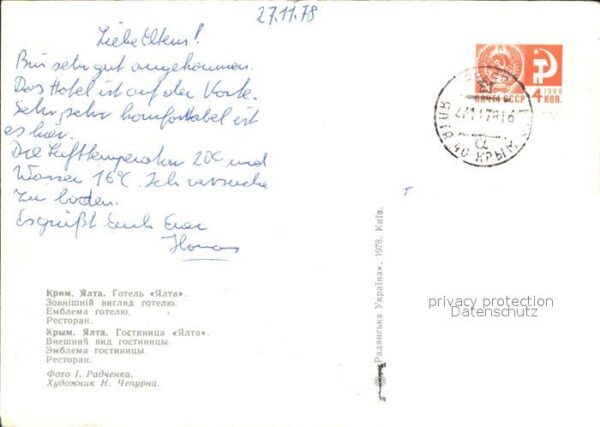 27.11.78
Liebe Eltern!
Bin sehr gut angekommen.
Das Hotel ist auf der Karte.
Sehr, sehr komfortabel ist
es hier.
Die Lufttemperatur 20C und
Wasser 16°C. Ich versuche
zu baden.
Es grüßt Euch Euer
ПОЧТА СССР
1966
4 КОП.
ЯЛТА
40 КРЫМ
Крим. Ялта. Готель «Ялта».
Зовнішній вигляд готелю.
Емблема готелю.
Ресторан.
Крым. Ялта. Гостиница «Ялта».
Внешний вид гостиницы.
Эмблема гостиницы.
Ресторан.
Фото І. Радченка.
Художник Н. Чепурна.
«Радянська Україна», 1978. Київ.
privacy protection
Datenschutz